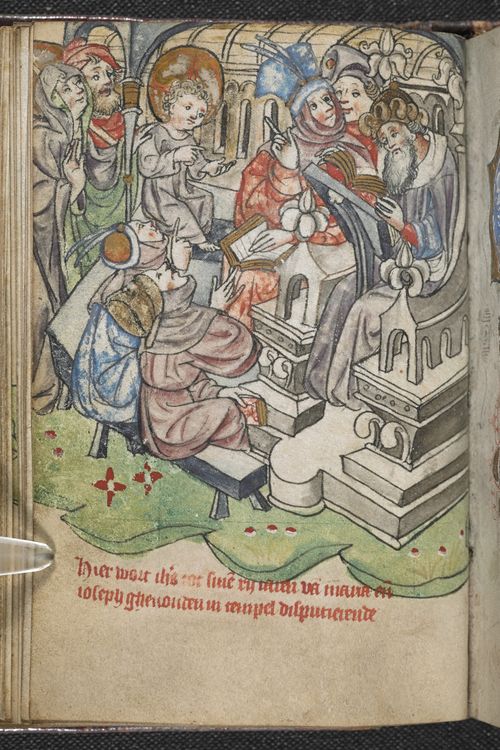 Hier wort ihs tot sinē xij iaren vā marien eñ
ioseph ghevonden in tempel disputierende